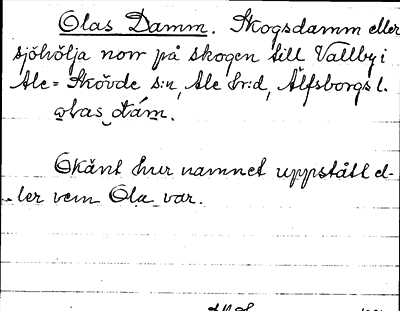 Olas Damm. Skogsdamm eller
sjöhölja norr på skogen till Vallby i
Ale-Skövde s:n, Ale hr:d, Älfsborgs l.
ωlas dám.
Okänt hur namnet uppstått el-
ler vem Ola var.